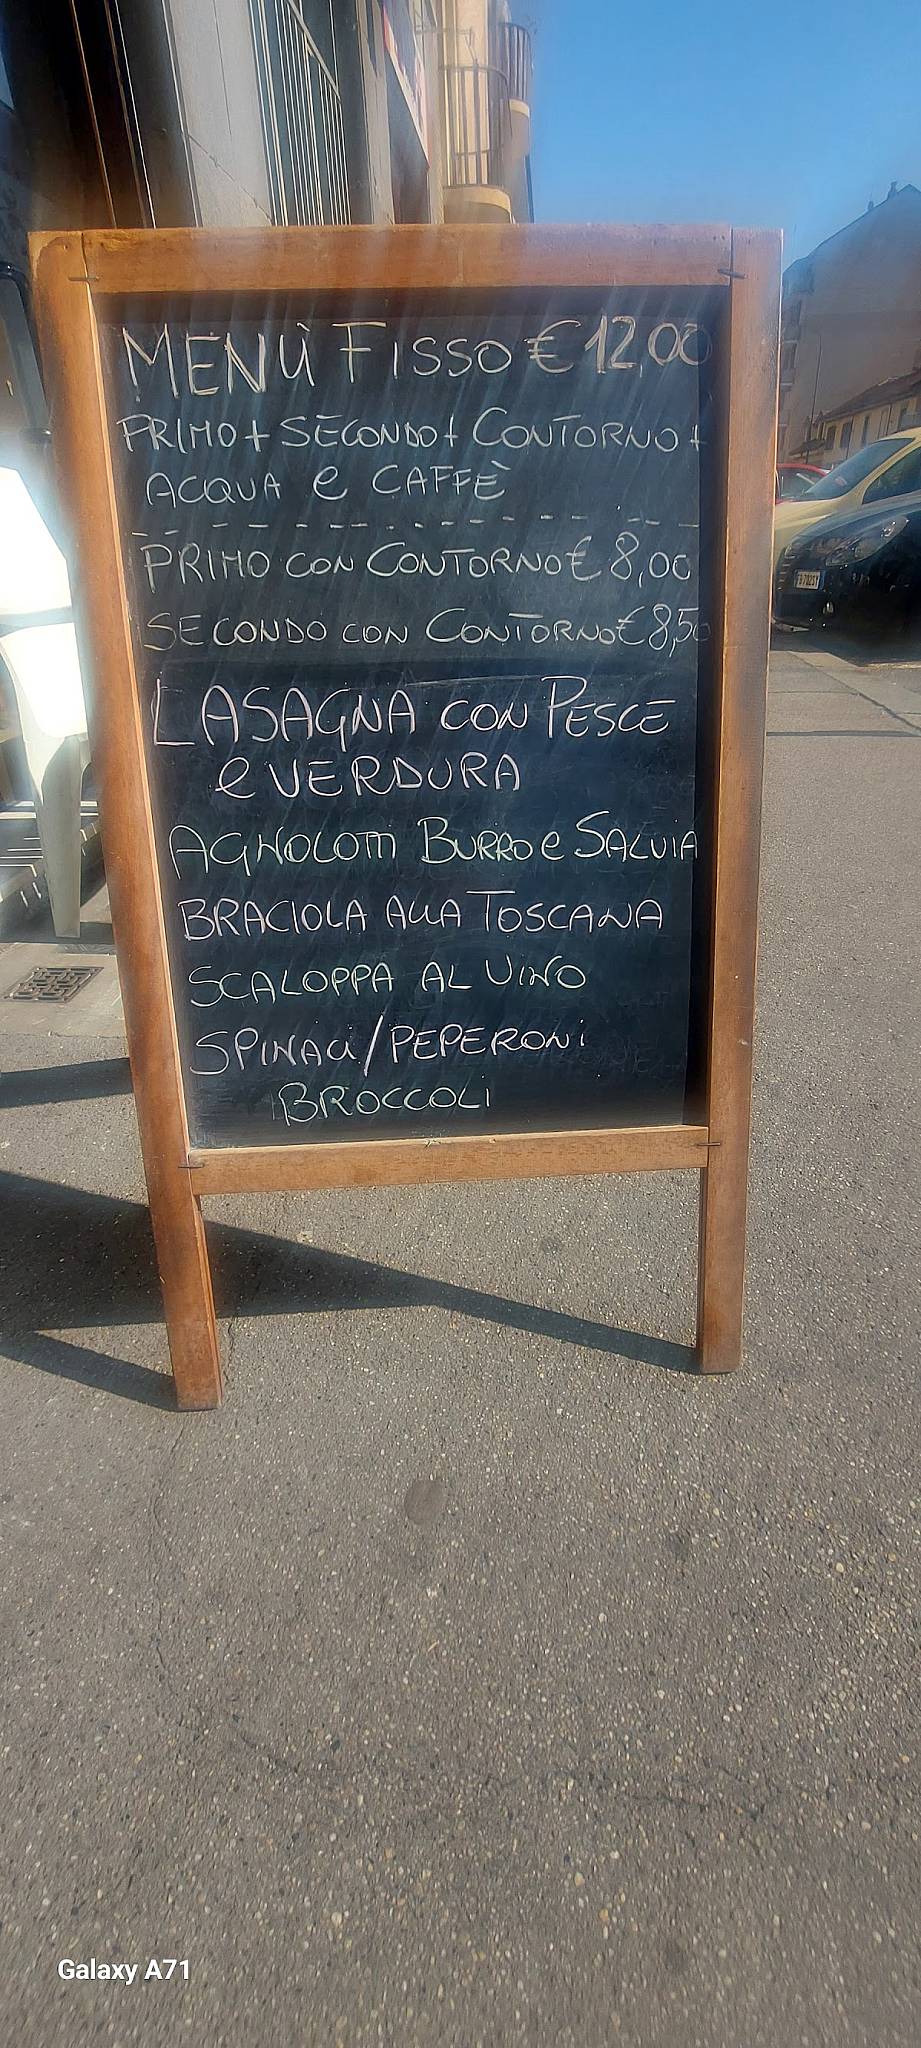 MENÙ FISSO € 12,00
PRIMO + SECONDO + CONTORNO +
ACQUA e CAFFÈ
PRIMO CON CONTORNO € 8,00
SECONDO CON CONTORNO € 8,50
LASAGNA CON PESCE
e VERDURA
AGNOLOTTI BURRO e SALVIA
BRACIOLA ALLA TOSCANA
SCALOPPA AL VINO
SPINACI/PEPERONI
BROCCOLI
Galaxy A71